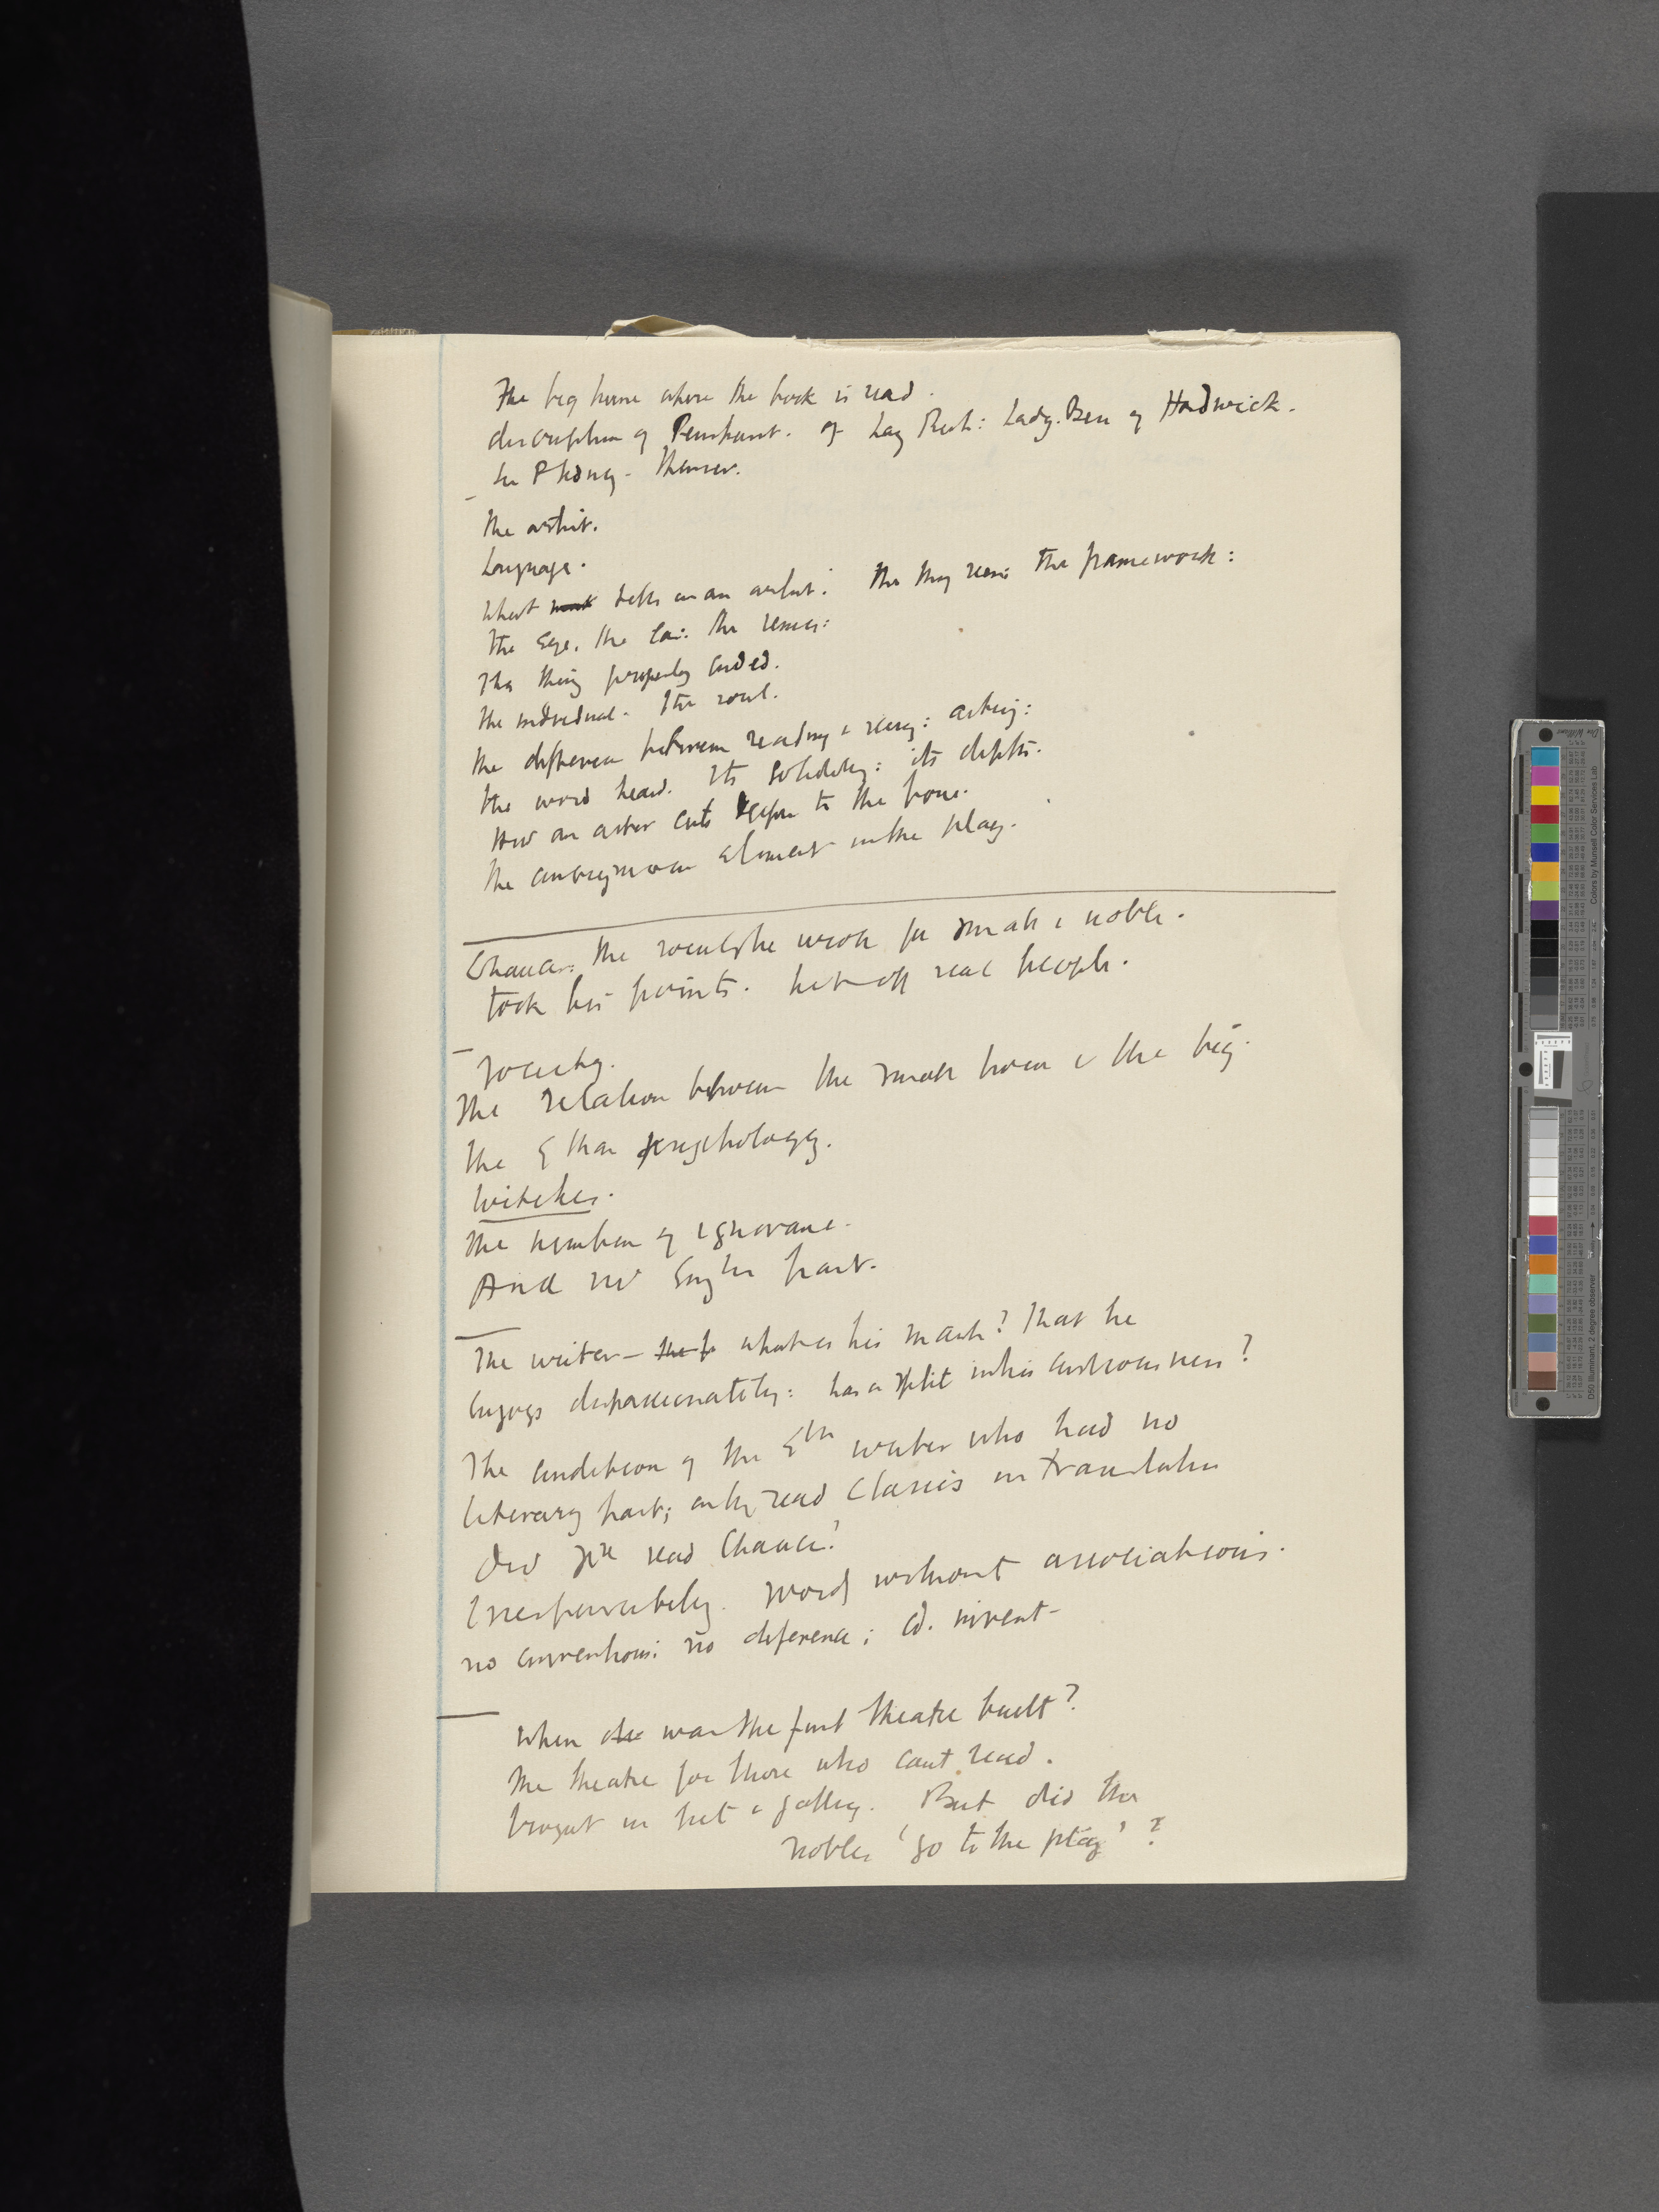 The big house where the book is read.
description of Penshurst. of Lady Rich: Lady. Bess of Hardwick.
Sir P Sidney -
The artist.
Language.
What tells in an artist. the framework:
The eye. the ear: the senses:
The thing properly ended.
the individual. The soul.
the difference between reading & seeing: acting:
the word heard. Its solidity: its depths.
How an actor cuts deeper to the bone.
the anonymous element in the play.
Chaucer: the society he wrote for small & noble.
took his points. hit off real people.
Society.
The relation between the small house & the big.
The Ethan psychology.
Witches.
The number of ignorant.
And no English past.
The writer — what is his mark? That he
enjoys dispassionately: has a split in his consciousness?
The condition of the Eth writer who had no
literary past; only read Classics in translation
Did Sre read Chaucer?
Irresponsibility. Words without associations.
no conventions: no deference; cd. invent-
When was the first theatre built?
The theatre for those who cant read.
brought in pit & gallery. But did the
nobles 'go to the play'?